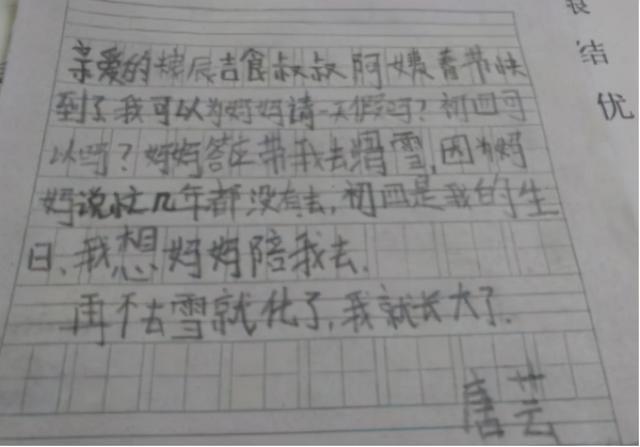 亲爱的棟辰吉食叔叔阿姨春节快
到了我可以为妈妈请一天假吗？初四可
以吗？妈妈答应带我去滑雪，因为妈
妈说忙几年都没有去，初四是我的生
日、我想妈妈陪我去.
再不去雪就化了，我就长大了.
唐芸
结
优